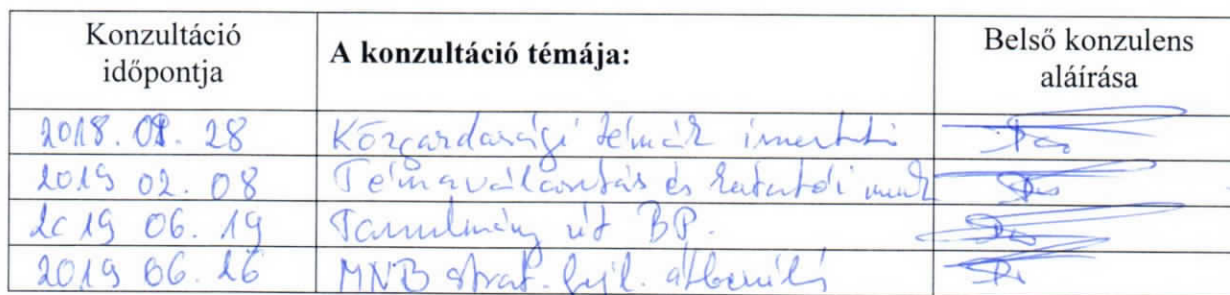 Konzultáció
időpontja
A konzultáció témája:
Belső konzulens
aláírása
2018. 08. 28 Közgazdasági témák ismertetés
2019 02. 08 Témaválasztás és kutatói munk
2019 06. 19 Tanulmány út BP.
2019 06. 26 MNB strat. fejl. átbeszélés